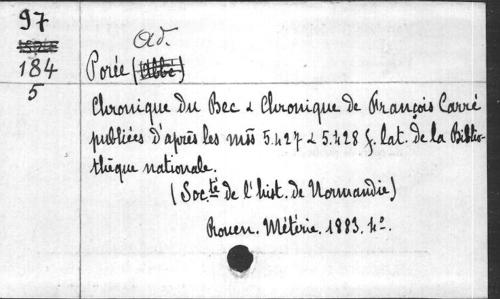 97
184
5
Ad.
Porée (Abbé)
Chronique du Bec & Chronique de François Carré
publiées d'après les mss 5.427 & 5.428 f. lat. de la Biblio-
thèque nationale.
(Soc.té de l'hist. de Normandie)
Rouen. Métérie. 1883. 4o.